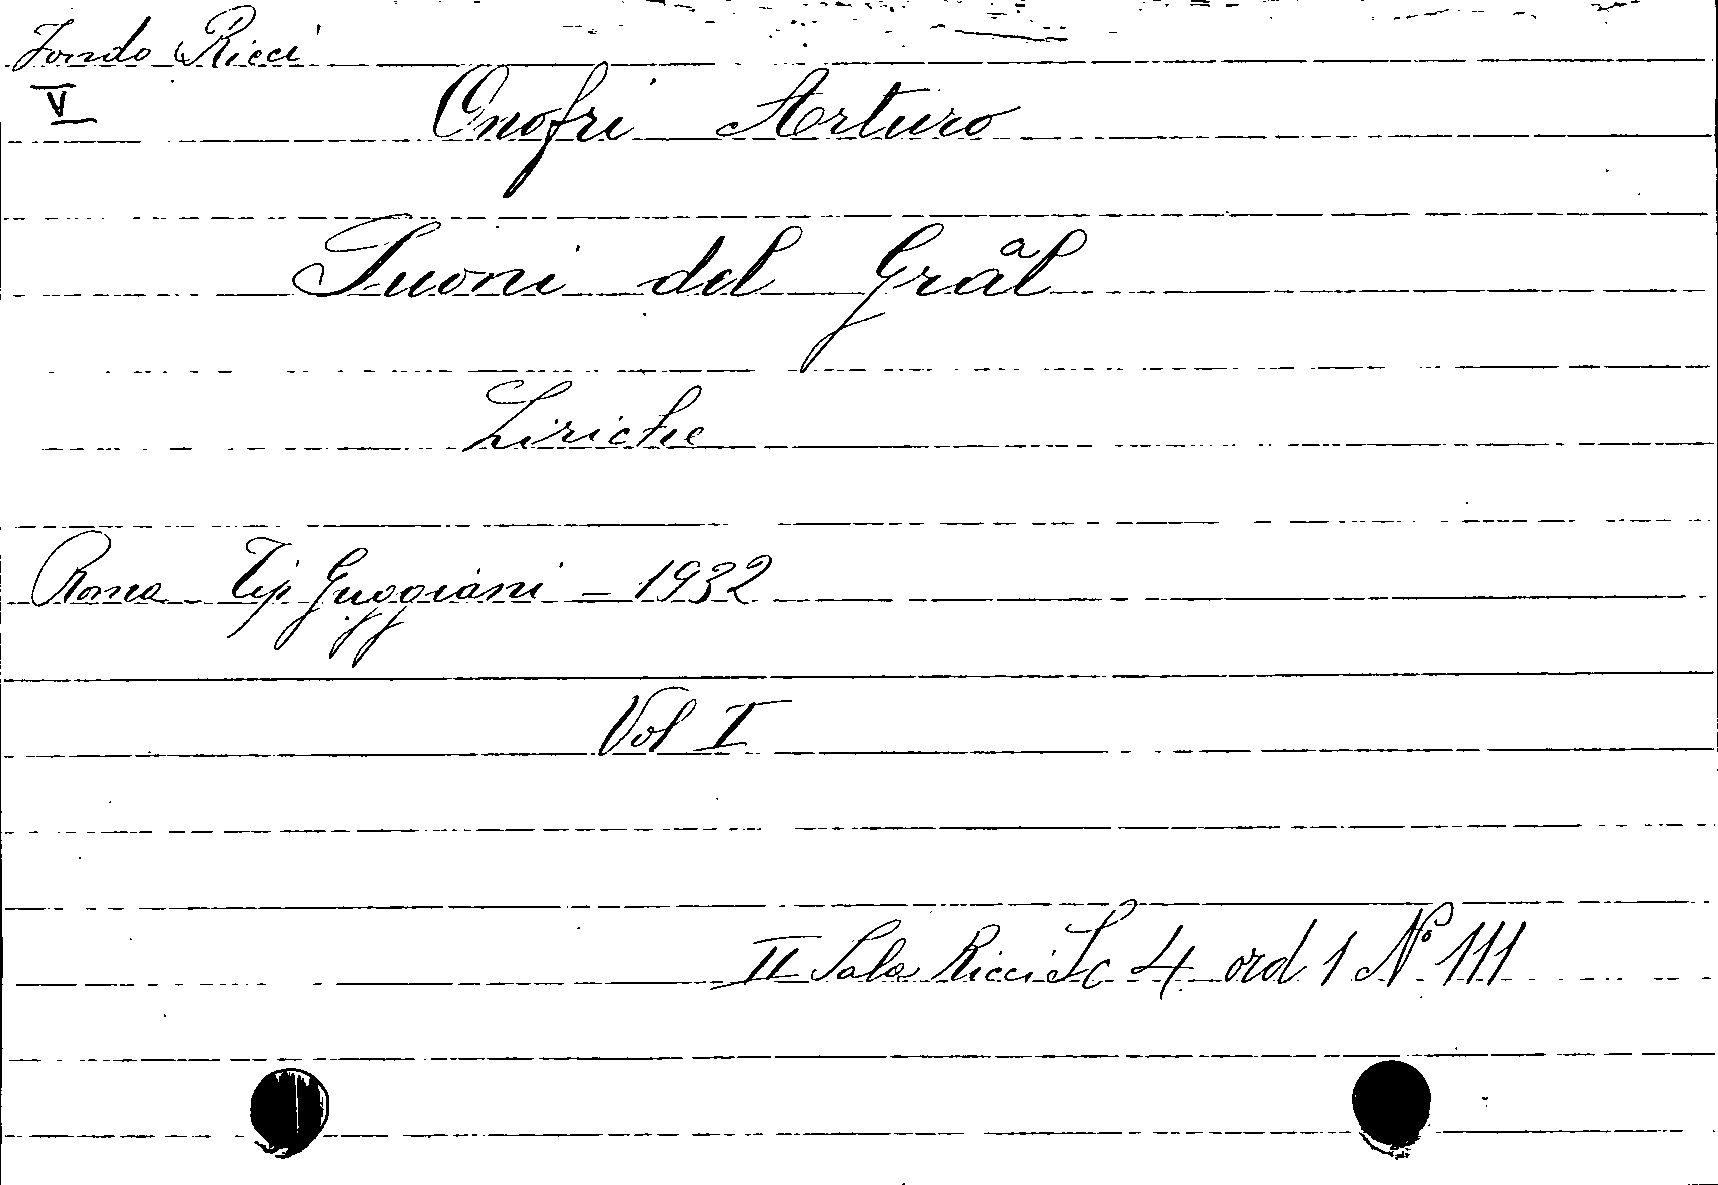 Fondo Ricci
V
Onofri Arturo
Suoni del Grāl
Liriche
Roma - Tip Guggiani - 1932
Vol I
II Sala Ricci Sc 4 ord 1 Nº 111